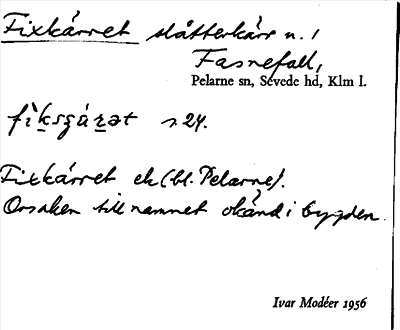 Fixkärret slåtterkärr n. 1
Fasnefall,
Pelarne sn, Sevede hd, Klm l.
fiksʒárət s. 24.
Fixkärret ek (bl. Pelarne).
Orsaken till namnet okänd i bygden.
Ivar Modéer 1956